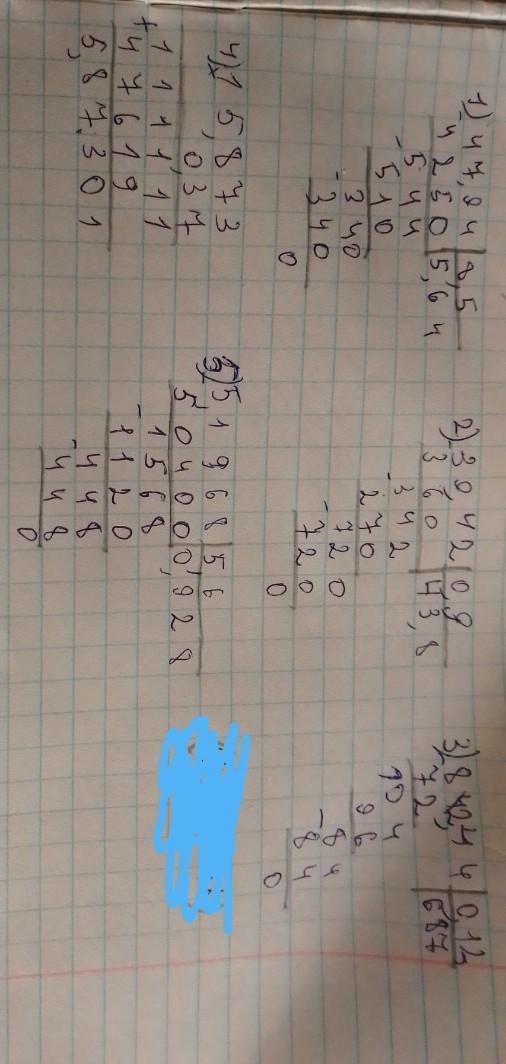 1) 47,94 | 8,5
- 4250 | 5,64
- 544
510
- 340
- 340
0
2) 39,42 | 0,9
360 | 43,8
- 342
270
- 720
- 720
0
3) 82,44 | 0,12
72 | 687
104
96
- 84
84
0
4) 15,873
0,37
111111
+ 47619
5,87301
5) 51968 | 56
50400 | 0,928
- 1568
1120
- 448
448
0